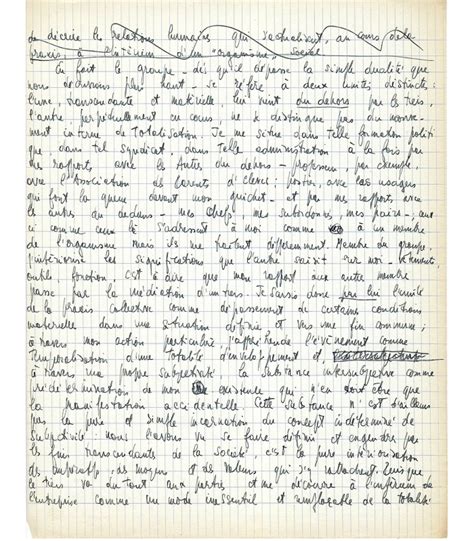 de décrire les relations humaines qui s'actualisent, au cours de la
praxis, à l'intérieur d'un "organisme" social.
En fait le groupe – dès qu'il dépasse la simple dualité que
nous décrivions plus haut – se réfère à deux unités distinctes :
l'une, transcendante et matérielle, lui vient du dehors par le tiers,
l'autre, perpétuellement en cours, ne se distingue pas du mouve-
ment interne de totalisation. Je me situe dans telle formation politi-
que dans tel syndicat, dans telle administration à la fois par
mes rapports avec les Autres du dehors – professeur, par exemple,
avec l'Association des Parents d'élèves ; postier, avec les usagers
qui font la queue devant mon guichet – et par mes rapports avec
les autres au dedans – mes chefs, mes subordonnés, mes pairs –, ceux
ci comme ceux là s'adressent à moi comme à un membre
de l'organisme mais ils me traitent différemment. Membre du groupe,
j'intériorise les significations que l'autre saisit sur moi – vêtements,
outils, fonction. C'est à dire que mon rapport aux autres membres
passe par la médiation d'un tiers. Je saisis donc par lui l'unité
de la praxis collective comme dépassement de certaines conditions
matérielles dans une situation définie et vers une fin commune ;
à travers mon action particulière, j'appréhende l'événement comme
temporalisation d'une totalité d'enveloppement et,
à travers ma propre subjectivité la substance intersubjective comme
prédétermination de mon existence qui n'en doit être que
la manifestation accidentelle. Cette substance n'est d'ailleurs
pas la pure et simple incarnation du concept indéterminé de
subjectivité : nous l'avons vu se faire définir et engendrer par
les fins transcendantes de la société, c'est la pure intériorisation
des impératifs, des moyens et des valeurs qui s'y rattachent. Puisque
le tiers va du tout aux parties et me découvre à l'intérieur de
l'entreprise comme un mode inessentiel et remplaçable de la totalité